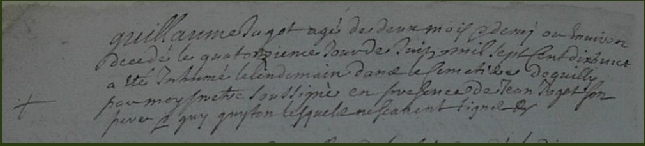 guillaume Jugot agé de deux mois & demy ou environ
decedé le quatorzieme Jour de Juin mil sept cent dixhuict
a ete Inhumé le lendemain dans le cemetiere de quilly
par moy pretre soussigné en presence de Jean Jugot son
pere & guy guyton lesquels ne scavent signer